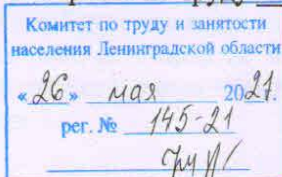 Комитет по труду и занятости
населения Ленинградской области
«26» мая 2021.
рег. № 145-21